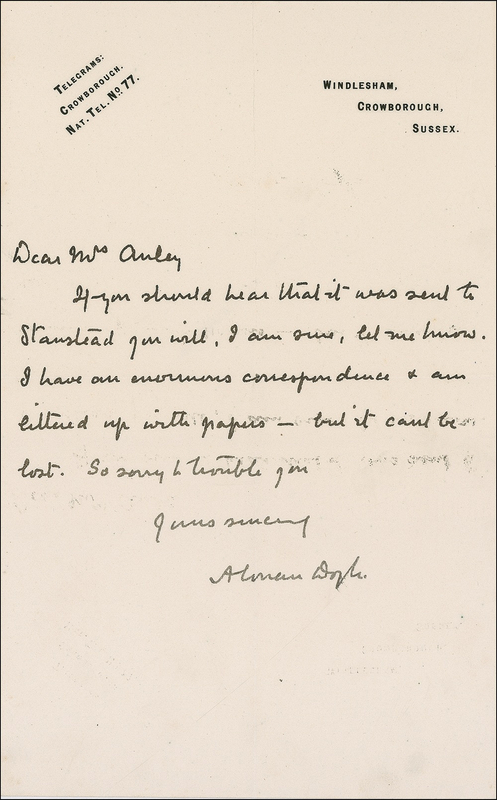 TELEGRAMS:
CROWBOROUGH.
NAT. TEL. No 77.
WINDLESHAM,
CROWBOROUGH,
SUSSEX.
Dear Mrs Anley
If you should hear that it was sent to
Stanstead you will, I am sure, let me know.
I have an enormous correspondence & am
littered up with papers — but it can't be
lost. So sorry to trouble you
Yours sincerely
A Conan Doyle.